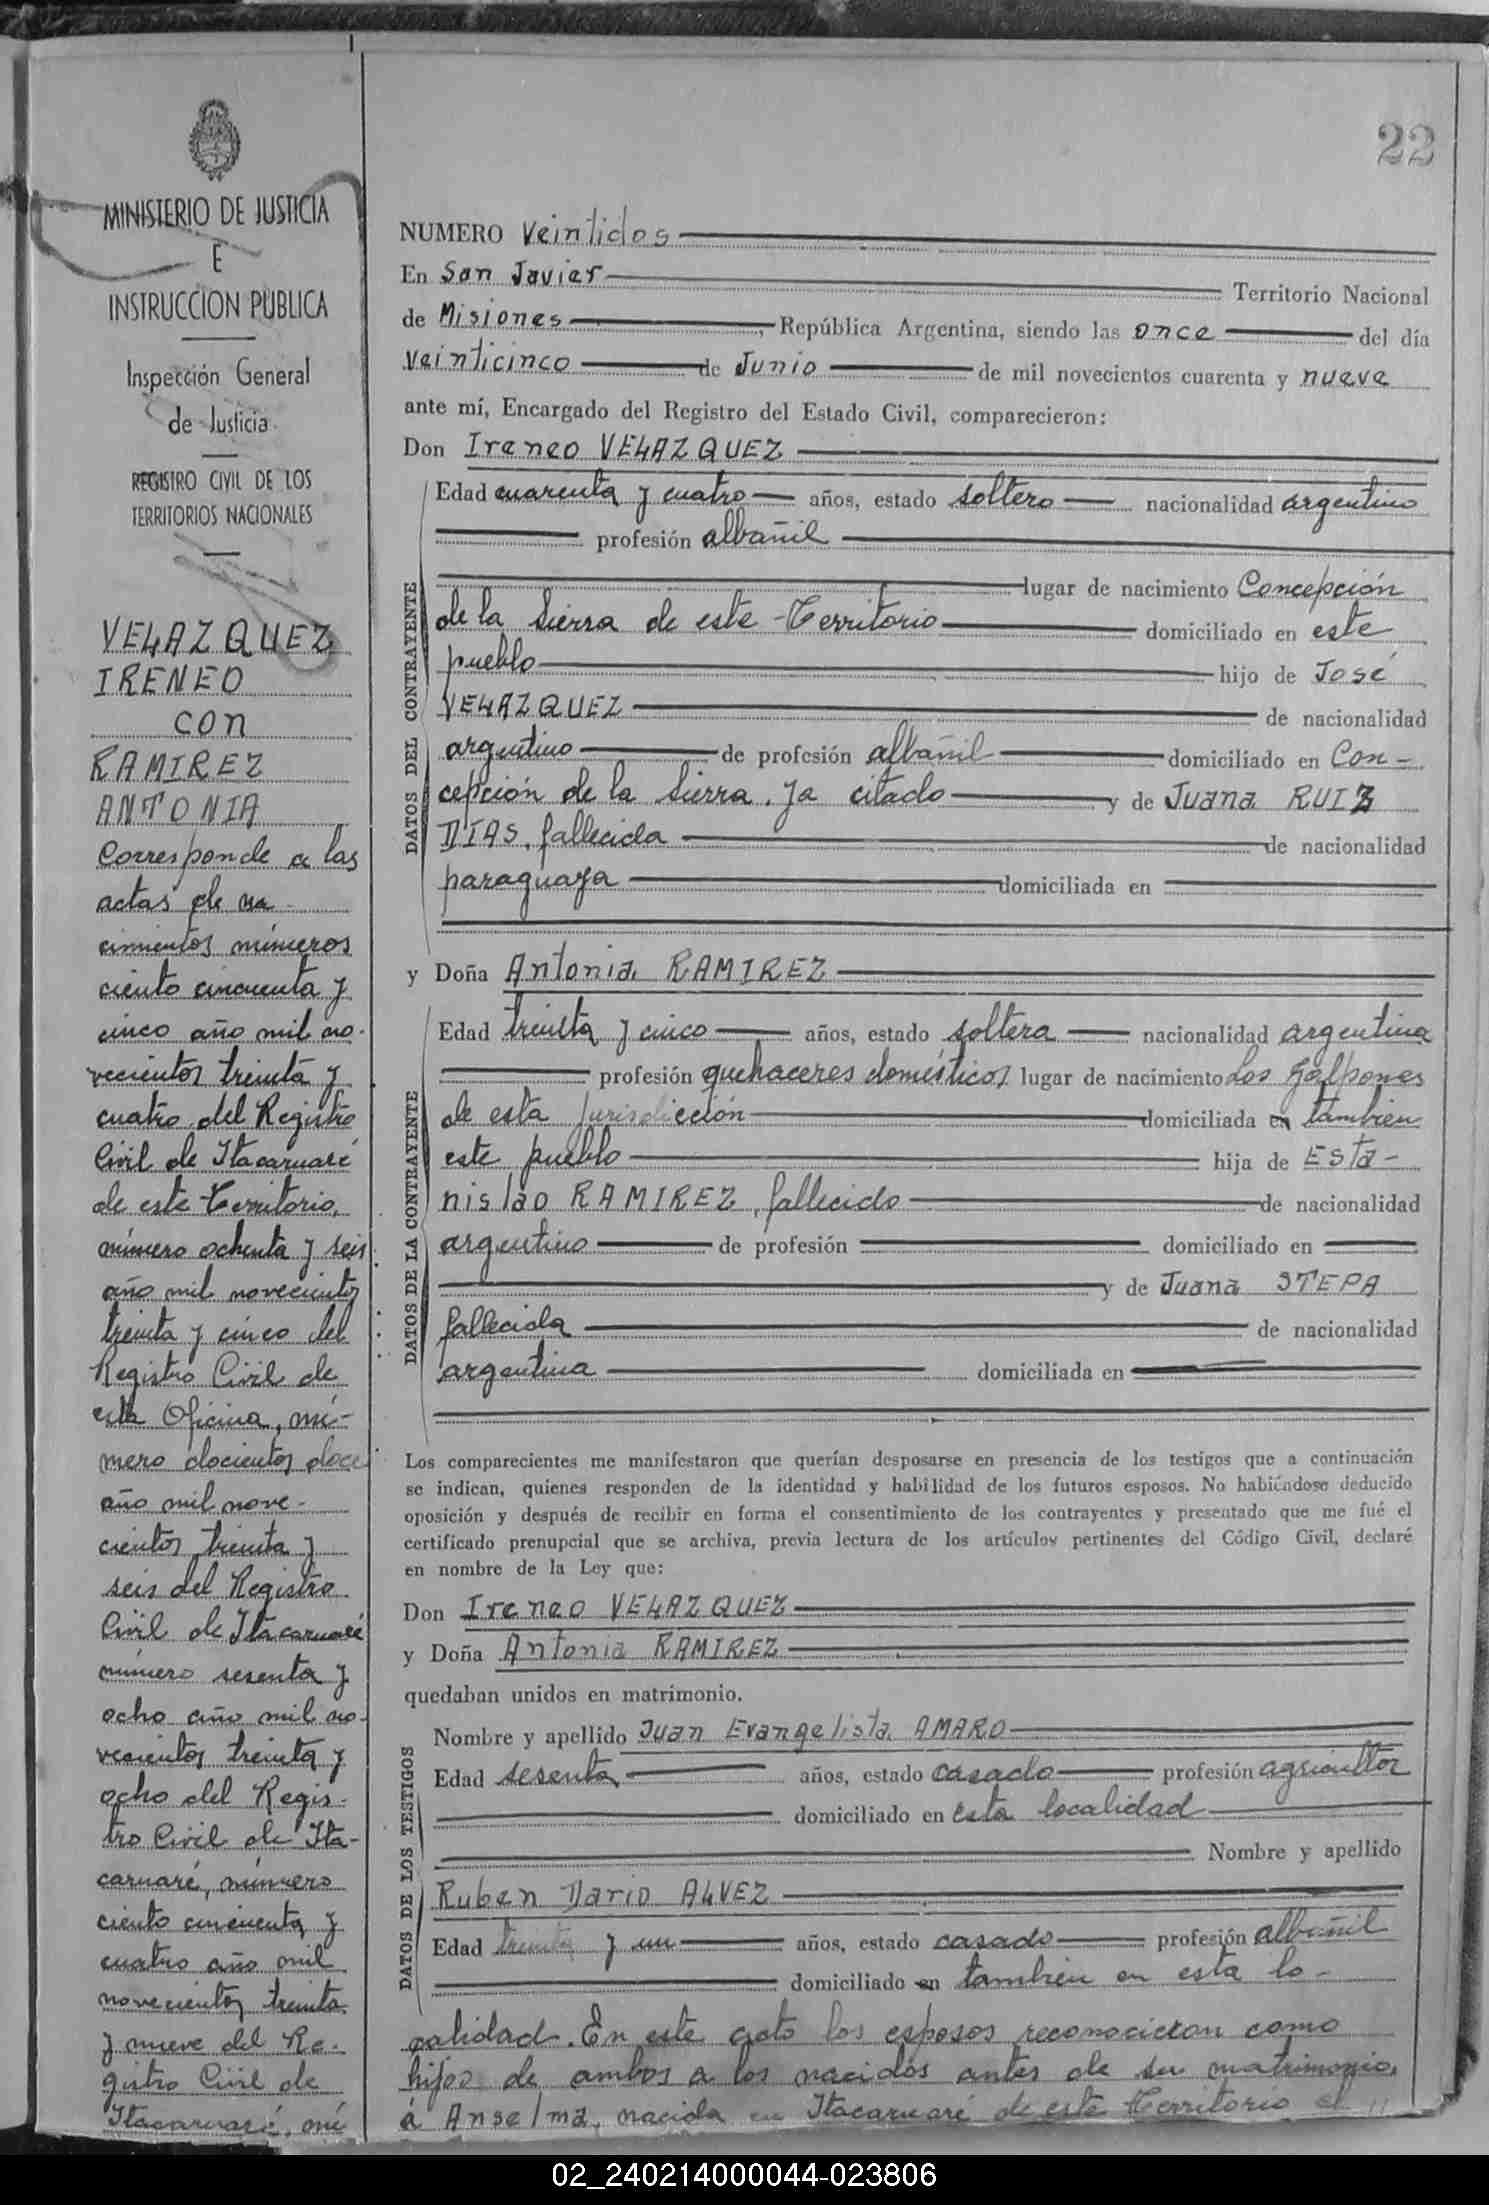 22
MINISTERIO DE JUSTICIA
E
INSTRUCCION PUBLICA
Inspección General
de Justicia
REGISTRO CIVIL DE LOS
TERRITORIOS NACIONALES
VELAZQUEZ
IRENEO
con
RAMIREZ
ANTONIA
Corresponde a las
actas de na
cimientos números
ciento cincuenta y
cinco año mil no-
vecientos treinta y
cuatro del Registro
Civil de Itacaruaré
de este Territorio,
número ochenta y seis
año mil novecientos
treinta y cinco del
Registro Civil de
esta Oficina, nú-
mero docientos doce
año mil nove-
cientos treinta y
seis del Registro
Civil de Itacaruaré
número sesenta y
ocho año mil no-
vecientos treinta y
ocho del Regis-
tro Civil de Ita-
caruaré, número
ciento cincuenta y
cuatro año mil
novecientos treinta
y nueve del Re-
gistro Civil de
Itacaruaré, nú
NUMERO veintidos
En San Javier Territorio Nacional
de Misiones, República Argentina, siendo las once del día
veinticinco de Junio de mil novecientos cuarenta y nueve
ante mí, Encargado del Registro del Estado Civil, comparecieron:
Don Ireneo VELAZQUEZ
DATOS DEL CONTRAYENTE
Edad cuarenta y cuatro años, estado soltero nacionalidad argentino
profesión albañil
lugar de nacimiento Concepción
de la Sierra de este Territorio domiciliado en este
pueblo hijo de José
VELAZQUEZ de nacionalidad
argentino de profesión albañil domiciliado en Con-
cepción de la Sierra, ya citado y de Juana RUIZ
DIAS, fallecida de nacionalidad
paraguaya domiciliada en
y Doña Antonia RAMIREZ
DATOS DE LA CONTRAYENTE
Edad treinta y cinco años, estado soltera nacionalidad argentina
profesión quehaceres domésticos lugar de nacimiento Los Galpones
de esta jurisdicción domiciliada en tambien
este pueblo hija de Esta-
nislao RAMIREZ, fallecido de nacionalidad
argentino de profesión domiciliado en
y de Juana STEPA
fallecida de nacionalidad
argentina domiciliada en
Los comparecientes me manifestaron que querían desposarse en presencia de los testigos que a continuación
se indican, quienes responden de la identidad y habilidad de los futuros esposos. No habiéndose deducido
oposición y después de recibir en forma el consentimiento de los contrayentes y presentado que me fué el
certificado prenupcial que se archiva, previa lectura de los artículos pertinentes del Código Civil, declaré
en nombre de la Ley que:
Don Ireneo VELAZQUEZ
y Doña Antonia RAMIREZ
quedaban unidos en matrimonio.
DATOS DE LOS TESTIGOS
Nombre y apellido Juan Evangelista AMARO
Edad sesenta años, estado casado profesión agricultor
domiciliado en esta localidad
Nombre y apellido
Ruben Dario ALVEZ
Edad treinta y un años, estado casado profesión albañil
domiciliado en tambien en esta lo-
calidad. En este acto los esposos reconocieron como
hijos de ambos a los nacidos antes de su matrimonio,
á Anselma, nacida en Itacaruaré de este Territorio el
02_240214000044-023806